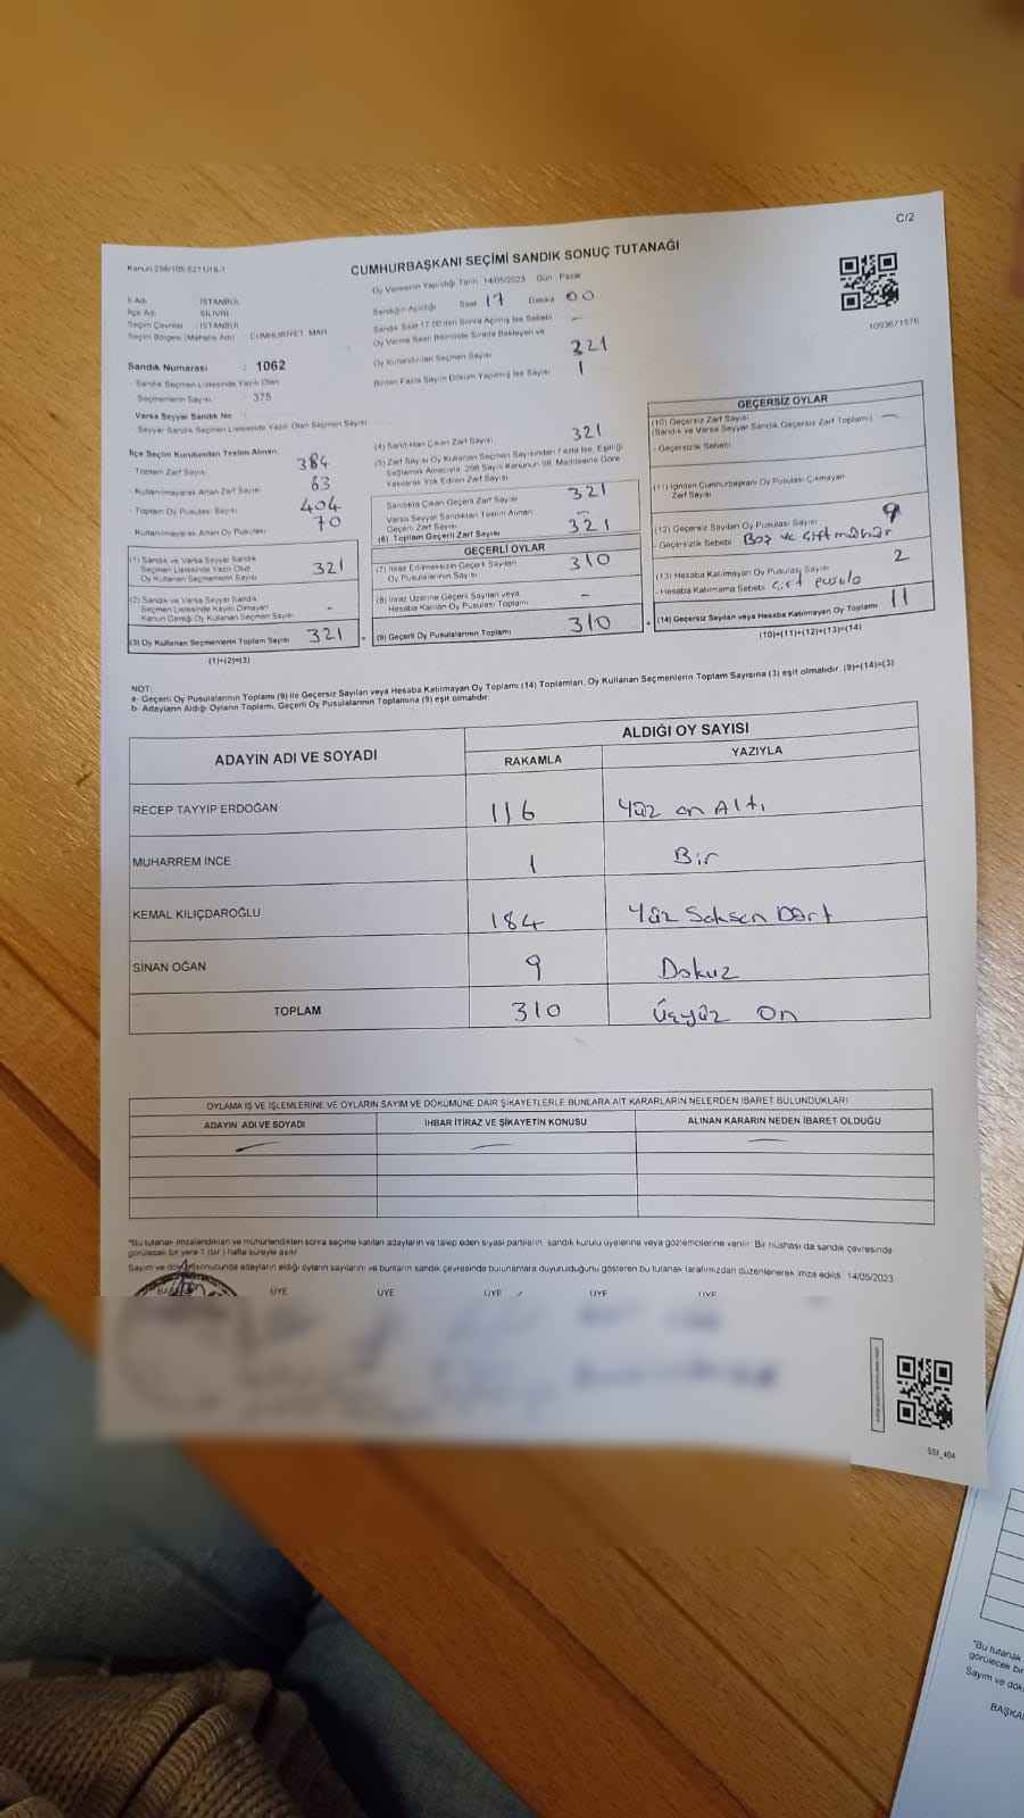 C/2
CUMHURBAŞKANI SEÇİMİ SANDIK SONUÇ TUTANAĞI
Oy Vermenin Yapıldığı Tarih 14/05/2023 Gün Pazar
İli Adı İSTANBUL
İlçe Adı SİLİVRİ
Seçim Çevresi İSTANBUL
Seçim Bölgesi (Mahalle Adı) CUMHURİYET MAH
Sandık Numarası : 1062
Sandık Seçmen Listesinde Yazılı Olan
Seçmenlerin Sayısı 375
Varsa Seyyar Sandık No
Seyyar Sandık Seçmen Listesinde Yazılı Olan Seçmen Sayısı
İlçe Seçim Kurulundan Teslim Alınan
Toplam Zarf Sayısı 384
Kullanılmayarak Artan Zarf Sayısı 63
Toplam Oy Pusulası Sayısı 404
Kullanılmayarak Artan Oy Pusulası 70
(1) Sandık ve Varsa Seyyar Sandık
Seçmen Listesinde Yazılı Olup
Oy Kullanan Seçmenlerin Sayısı 321
(2) Sandık ve Varsa Seyyar Sandık
Seçmen Listesinde Kayıtlı Olmayan
Kanun Gereği Oy Kullanan Seçmen Sayısı -
(3) Oy Kullanan Seçmenlerin Toplam Sayısı 321
(1)+(2)=(3)
Sandığın Açıldığı Saat 17 Dakika 00
Sandık Saat 17.00'den Sonra Açılmış İse Sebebi -
Oy Verme Saati Bitiminde Sırada Bekleyen ve
Oy Kullandırılan Seçmen Sayısı 321
Birden Fazla Sayım Döküm Yapılmış İse Sayısı 1
(4) Sandıktan Çıkan Zarf Sayısı 321
(5) Zarf Sayısı Oy Kullanan Seçmen Sayısından Fazla İse, Eşitliği
Sağlamak Amacıyla, 298 Sayılı Kanunun 98. Maddesine Göre
Yakılarak Yok Edilen Zarf Sayısı
Sandıkta Çıkan Geçerli Zarf Sayısı 321
Varsa Seyyar Sandıktan Teslim Alınan
Geçerli Zarf Sayısı -
(6) Toplam Geçerli Zarf Sayısı 321
GEÇERLİ OYLAR
(7) İtiraz Edilmeksizin Geçerli Sayılan
Oy Pusulalarının Sayısı 310
(8) İtiraz Üzerine Geçerli Sayılan veya
Hesaba Katılan Oy Pusulası Toplamı -
(9) Geçerli Oy Pusulalarının Toplamı 310
1093671576
GEÇERSİZ OYLAR
(10) Geçersiz Zarf Sayısı
(Sandık ve Varsa Seyyar Sandık Geçersiz Zarf Toplamı) -
- Geçersizlik Sebebi
(11) İçinden Cumhurbaşkanı Oy Pusulası Çıkmayan
Zarf Sayısı
(12) Geçersiz Sayılan Oy Pusulası Sayısı 9
- Geçersizlik Sebebi Boş ve Çift mühür
(13) Hesaba Katılmayan Oy Pusulası Sayısı 2
- Hesaba Katılmama Sebebi Çift pusula
(14) Geçersiz Sayılan veya Hesaba Katılmayan Oy Toplamı 11
(10)+(11)+(12)+(13)=(14)
NOT:
a- Geçerli Oy Pusulalarının Toplamı (9) ile Geçersiz Sayılan veya Hesaba Katılmayan Oy Toplamı (14) Toplamları, Oy Kullanan Seçmenlerin Toplam Sayısına (3) eşit olmalıdır. (9)+(14)=(3)
b- Adayların Aldığı Oyların Toplamı, Geçerli Oy Pusulalarının Toplamına (9) eşit olmalıdır.
ADAYIN ADI VE SOYADI
ALDIĞI OY SAYISI
RAKAMLA YAZIYLA
RECEP TAYYİP ERDOĞAN 116 Yüz on Altı
MUHARREM İNCE 1 Bir
KEMAL KILIÇDAROĞLU 184 Yüz Seksen Dört
SİNAN OĞAN 9 Dokuz
TOPLAM 310 Üçyüz On
OYLAMA İŞ VE İŞLEMLERİNE VE OYLARIN SAYIM VE DÖKÜMÜNE DAİR ŞİKAYETLERLE BUNLARA AİT KARARLARIN NELERDEN İBARET BULUNDUKLARI
ADAYIN ADI VE SOYADI İHBAR İTİRAZ VE ŞİKAYETİN KONUSU ALINAN KARARIN NEDEN İBARET OLDUĞU
*Bu tutanak imzalandıktan ve mühürlendikten sonra seçime katılan adayların ve talep eden siyasi partilerin, sandık kurulu üyelerine veya gözlemcilerine verilir. Bir nüshası da sandık çevresinde
görülecek bir yere 1 (bir) hafta süreyle asılır
Sayım ve döküm sonucunda adayların aldığı oyların sayılarını ve bunların sandık çevresinde bulunanlara duyurulduğunu gösteren bu tutanak tarafımızdan düzenlenerek imza edildi. 14/05/2023
ÜYE ÜYE ÜYE ÜYE ÜYE
*Bu tutanak
görülecek bir
Sayım ve dök
BAŞKA